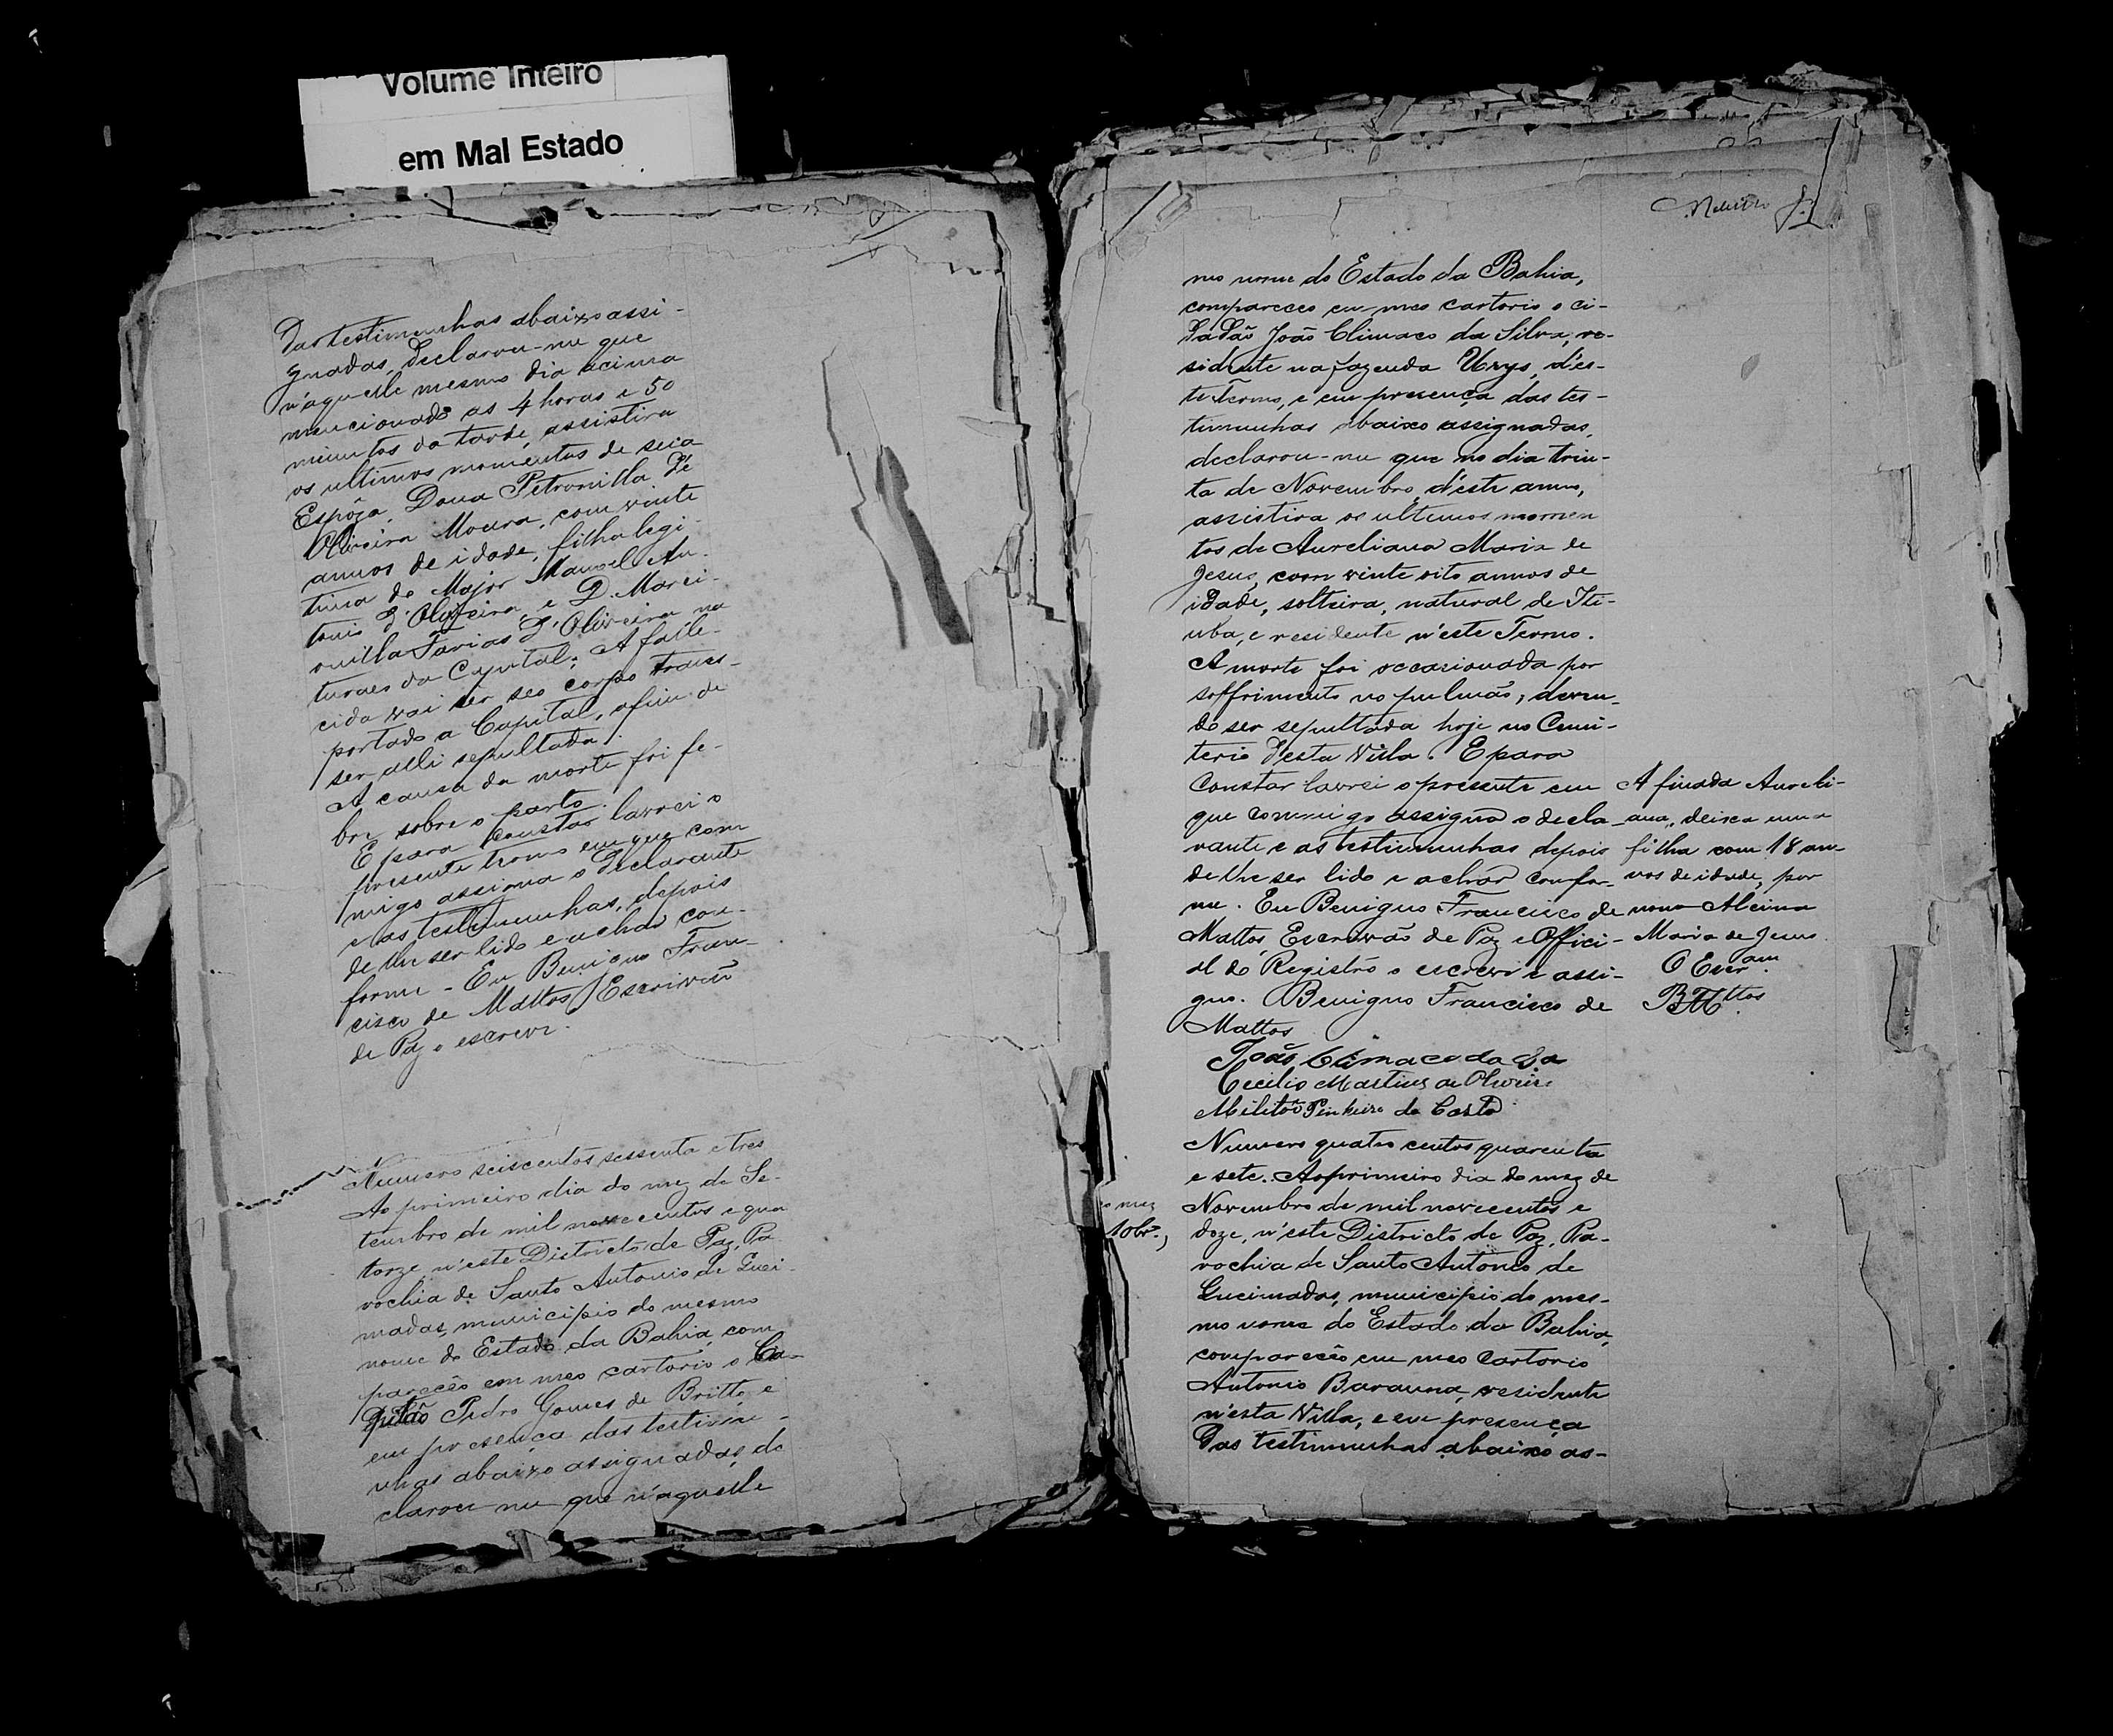 Volume Inteiro
em Mal Estado
das testimunhas abaixo assi-
gnadas, declarou-me que
n'aquelle mesmo dia acima
mencionado as 4 horas e 50
minutos da tarde, assistira
os ultimos momentos de sua
Espoza, Dona Petronilla de
Oliveira Moura, com vinte
annos de idade, filha legi-
tima do Major Manoel An-
tonio d'Oliveira, e D. Marci-
onilla Farias d'Oliveira na
turaes da Capital; A falle-
cida vai ser seo corpo trans-
portado a Capital, afim de
ser alli sepultada.
A causa da morte foi fe-
bre sobre o parto.
E para constar lavrei o
presente termo em que com
migo assigna o declarante
e as testimunhas, depois
de lhe ser lido e achar con-
forme - Eu Benigno Fran-
cisco de Mattos, Escrivão
de Paz o escrevi.
Numero seiscentos sessenta e tres
Ao primeiro dia do mez de Se-
tembro de mil novecentos e qua
torze, n'este Districto de Paz, Pa
rochia de Santo Antonio de Quei-
madas, municipio do mesmo
nome do Estado da Bahia, com
pareceo em meo cartorio o Ca-
pitão Pedro Gomes de Britto, e
em presença das testimu-
nhas abaixo assignadas, de
clarou me que n'aquelle
mo nome do Estado da Bahia,
compareceo em meo cartorio o ci-
dadão João Climaco da Silva, re-
sidente na fazenda Urys, d'es-
te Termo, e em presença das tes-
timunhas abaixo assignadas,
declarou-me que no dia trin-
ta de Novembro, d'este anno,
assistira os ultimos momen
tos de Aureliana Maria de
Jesus, com vinte oito annos de
idade, solteira, natural de Iti-
uba, e residente n'este Termo.
A morte foi occasionada por
soffrimento no pulmão, deven-
do ser sepultada hoje no Cemi-
terio desta Villa. E para
constar lavrei o presente em
que commigo assigna o decla-
rante e as testimunhas depois
de lhe ser lido e achar confor-
me. Eu Benigno Francisco de
Mattos, Escrivão de Paz e Offici-
al do Registro o escrevi e assi-
gno. Benigno Francisco de
Mattos
João Climaco da Sa
Cecilio Martins de Oliveira
Militão Pinheiro da Costa
A finada Aureli-
ana, deixa uma
filha com 18 an-
nos de idade, por
nome Alcina
Maria de Jesus.
O Escr.am
BMttos
Numero quatro centos quarenta
e sete. Ao primeiro dia do mez de
Novembro de mil novecentos e
doze, n'este Districto de Paz, Pa-
rochia de Santo Antonio de
Queimadas, municipio do mes-
mo nome do Estado da Bahia,
compareceo em meo Cartorio
Antonio Barauna, residente
n'esta Villa, e em presença
das testimunhas abaixo as-
mez
10br.,